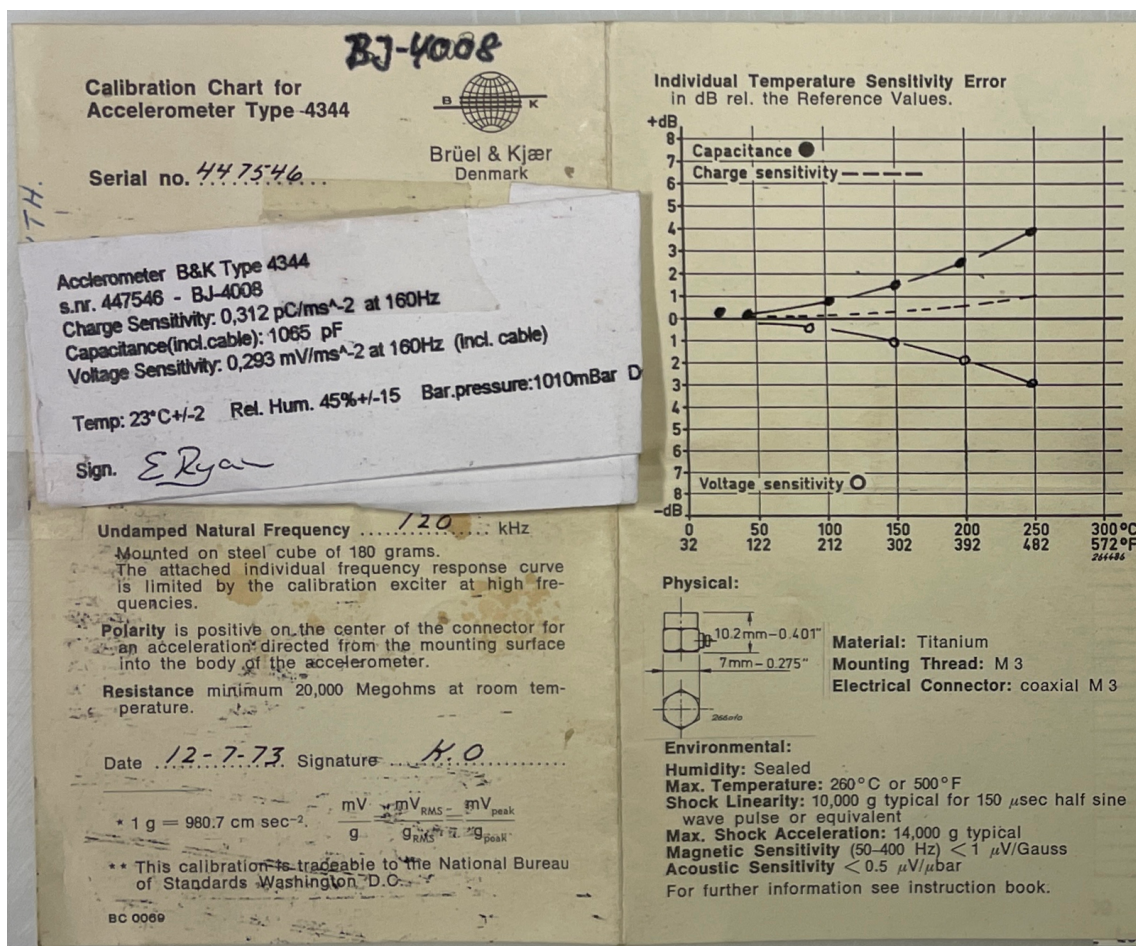 BJ-4008
Calibration Chart for
Accelerometer Type 4344
B K
Brüel & Kjær
Denmark
Serial no. 447546
TH.
Acclerometer B&K Type 4344
s.nr. 447546 - BJ-4008
Charge Sensitivity: 0,312 pC/ms^-2 at 160Hz
Capacitance(incl.cable): 1065 pF
Voltage Sensitivity: 0,293 mV/ms^-2 at 160Hz (incl. cable)
Temp: 23°C+/-2 Rel. Hum. 45%+/-15 Bar.pressure:1010mBar D
Sign. E Ryan
Undamped Natural Frequency ...120... kHz
Mounted on steel cube of 180 grams.
The attached individual frequency response curve
is limited by the calibration exciter at high fre-
quencies.
Polarity is positive on the center of the connector for
an acceleration directed from the mounting surface
into the body of the accelerometer.
Resistance minimum 20,000 Megohms at room tem-
perature.
Date 12-7-73 Signature K.O
* 1 g = 980.7 cm sec⁻². mV/g = mV RMS/g RMS = mV peak/g peak
** This calibration is traceable to the National Bureau
of Standards Washington D.C.
BC 0069
Individual Temperature Sensitivity Error
in dB rel. the Reference Values.
+dB
8
7
6
5
4
3
2
1
0
1
2
3
4
5
6
7
8
-dB
Capacitance
Charge sensitivity
Voltage sensitivity
0 50 100 150 200 250 300 °C
32 122 212 302 392 482 572 °F
264486
Physical:
10.2mm-0.401"
7mm-0.275"
Material: Titanium
Mounting Thread: M 3
Electrical Connector: coaxial M 3
Environmental:
Humidity: Sealed
Max. Temperature: 260°C or 500°F
Shock Linearity: 10,000 g typical for 150 μsec half sine
wave pulse or equivalent
Max. Shock Acceleration: 14,000 g typical
Magnetic Sensitivity (50-400 Hz) < 1 μV/Gauss
Acoustic Sensitivity < 0.5 μV/μbar
For further information see instruction book.